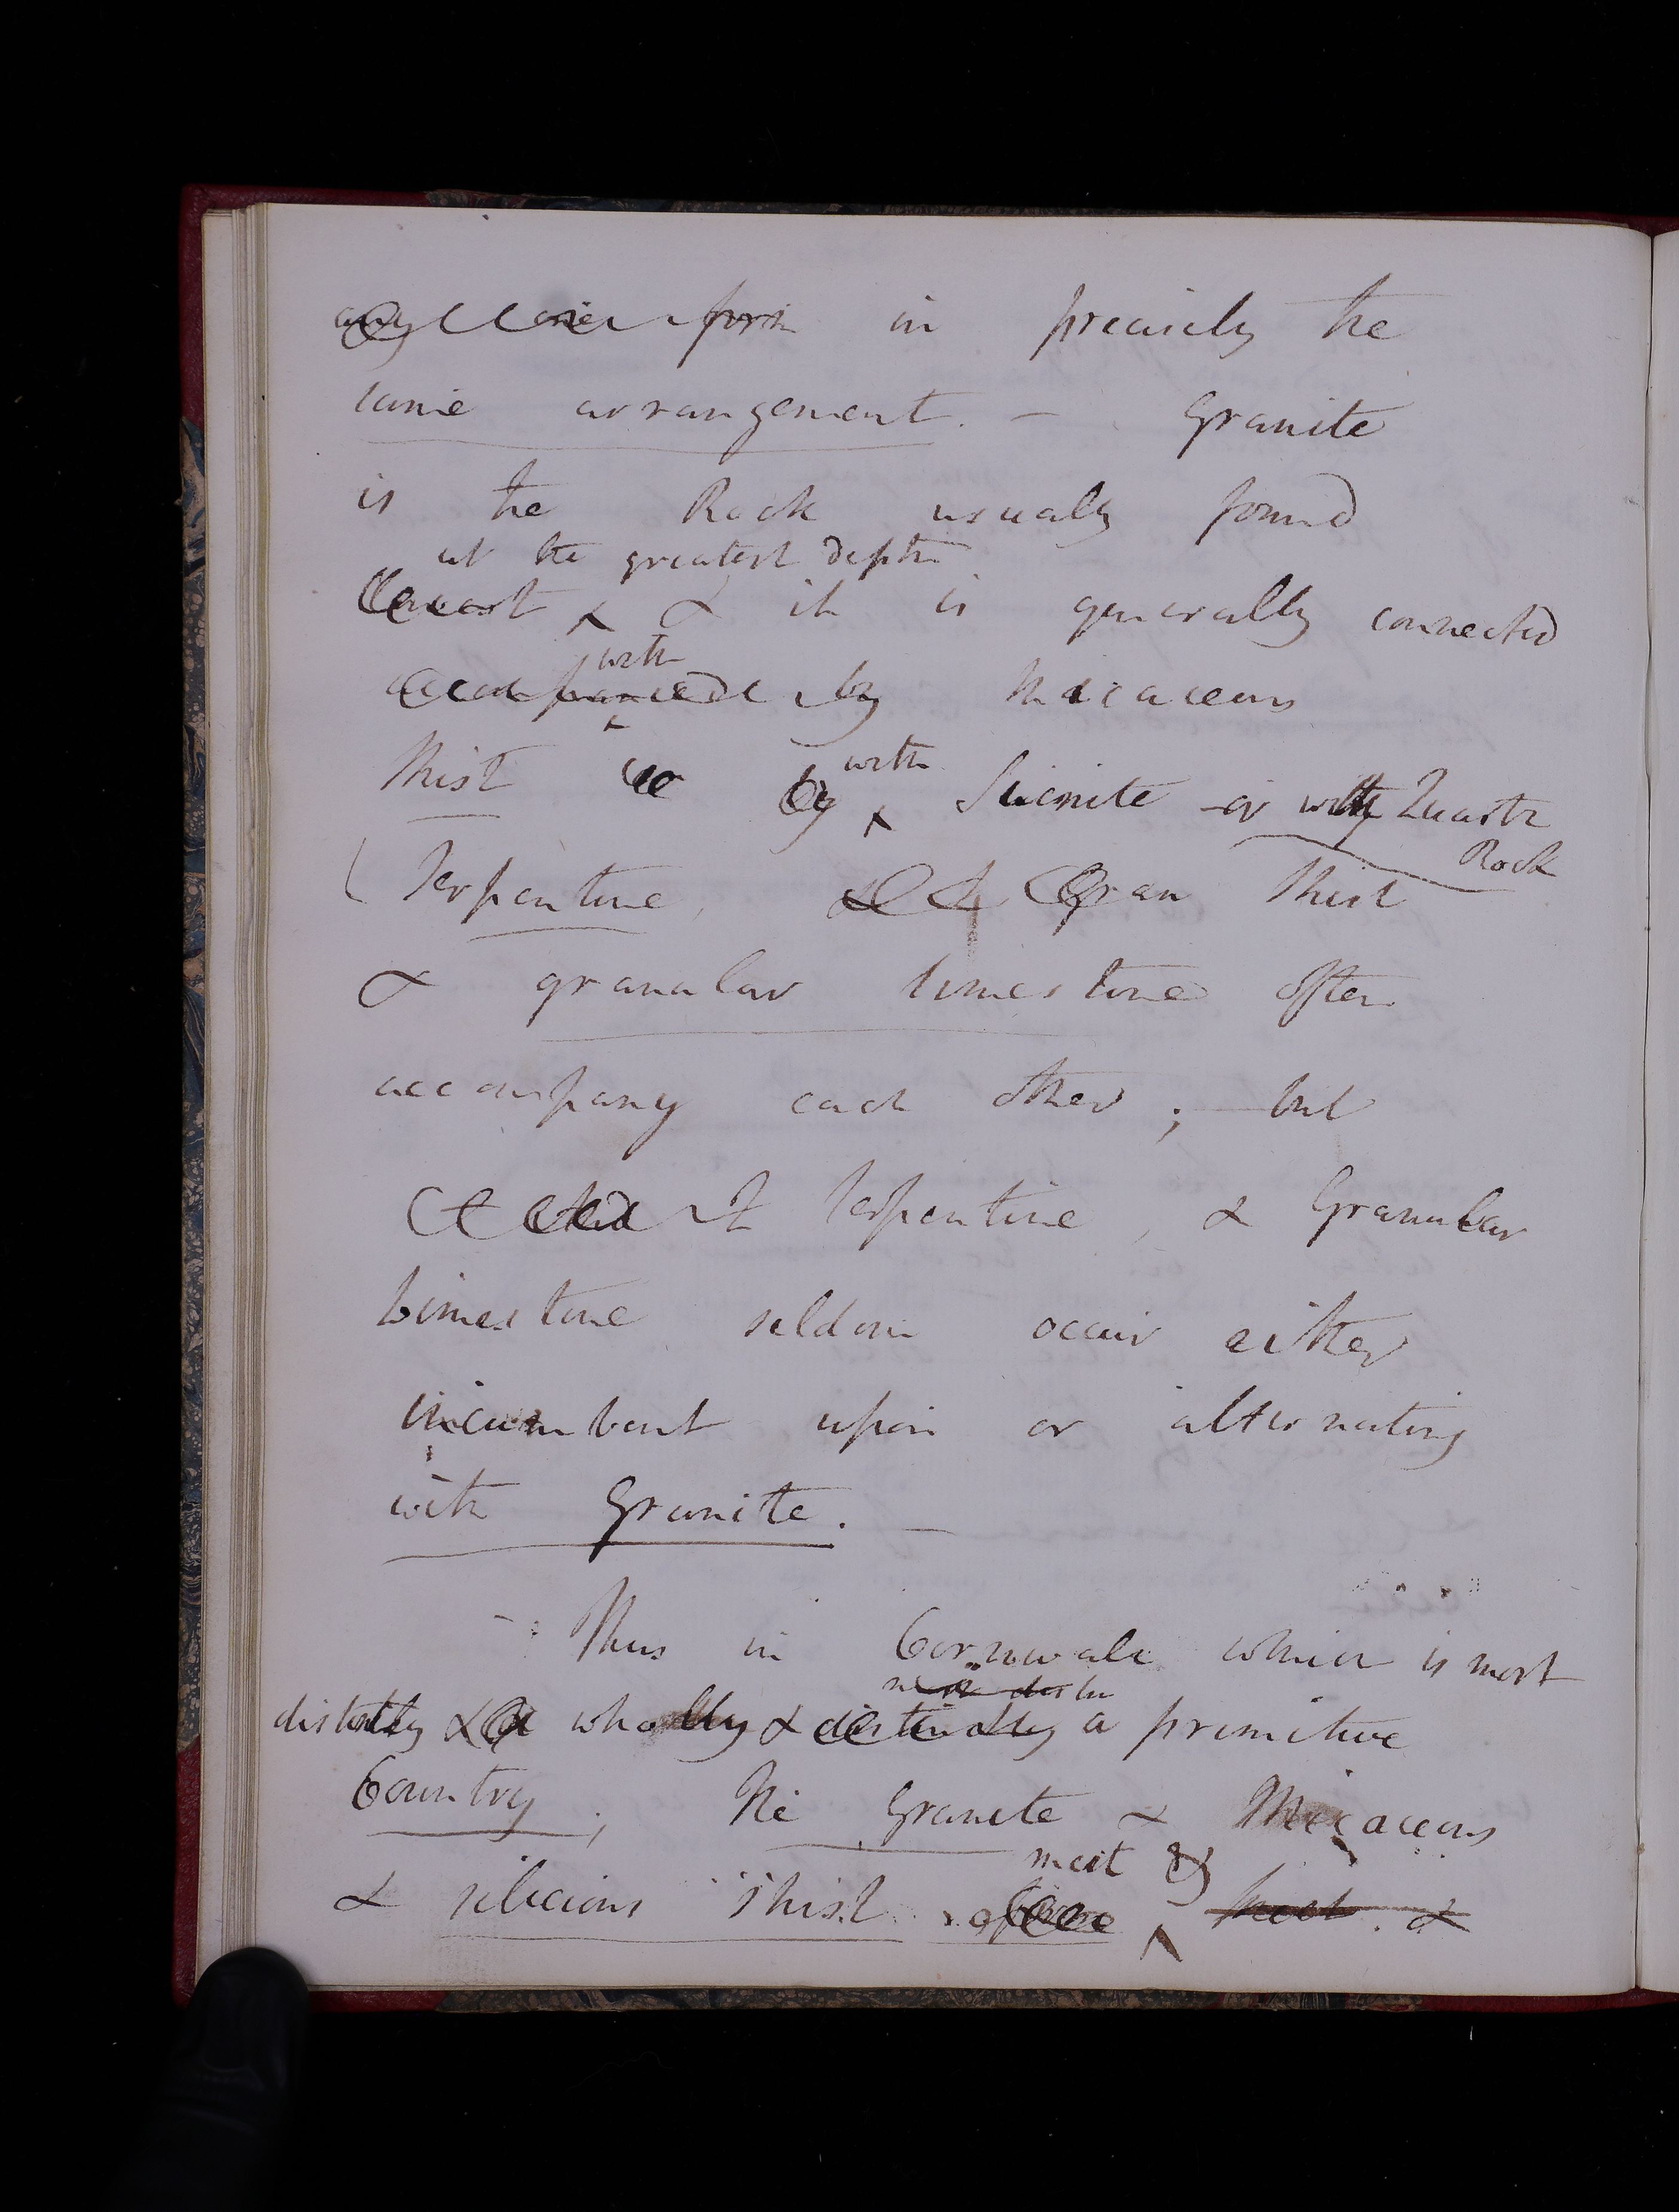 any one form in precisely the
same arrangement. – Granite
is the Rock usually found
at the greatest depth
lowest & it is generally connected
with
accompanied by Micaceous
Shist by with Sienite or with Quartz
Rock
Serpentine, Shist
& granular limestone often
accompany each other; but
Serpentine, & Granular
Limestone seldom occur either
incumbent upon or alternating
with Granite. –
– Thus in Cornwall which is most
distinctly & wholly & distinctly a primitive
Country, The Granite & Micaceous
most
& silicious Shist &